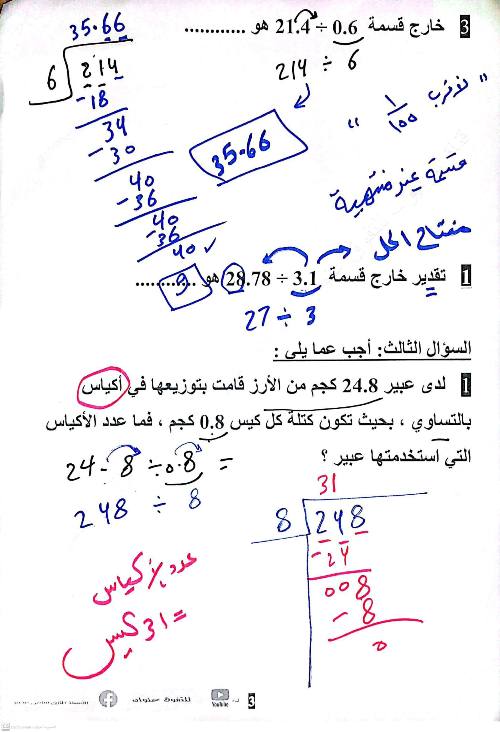 3 خارج قسمة 21.4 ÷ 0.6 هو ............
214 ÷ 6
35.66
6 214
- 18
34
- 30
40
- 36
40
- 36
40
35.66
" لأقرب 1/100 "
قسمة غير منتهية
مفتاح الحل
1 تقدير خارج قسمة 28.78 ÷ 3.1 هو ............
9
27 ÷ 3
السؤال الثالث: أجب عما يلى :
1 لدى عبير 24.8 كجم من الأرز قامت بتوزيعها في أكياس
بالتساوي ، بحيث تكون كتلة كل كيس 0.8 كجم ، فما عدد الأكياس
التي استخدمتها عبير ؟
24.8 ÷ 0.8 =
248 ÷ 8
31
8 248
- 24
008
- 8
0
عدد الأكياس
= 31 كيس
للتفوق عنوان
YouTube
3